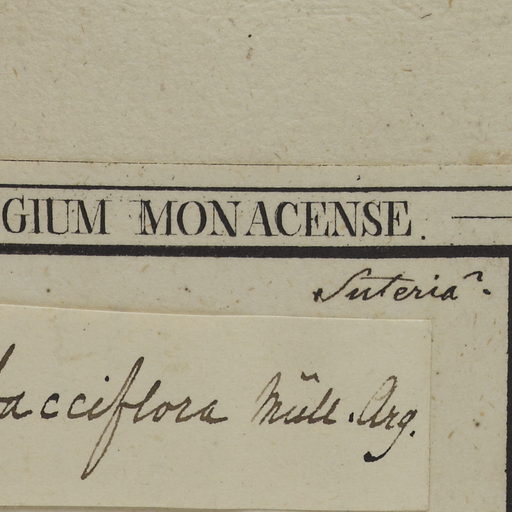 GIUM MONACENSE.
Suteria?.
acciflora Müll. Arg.